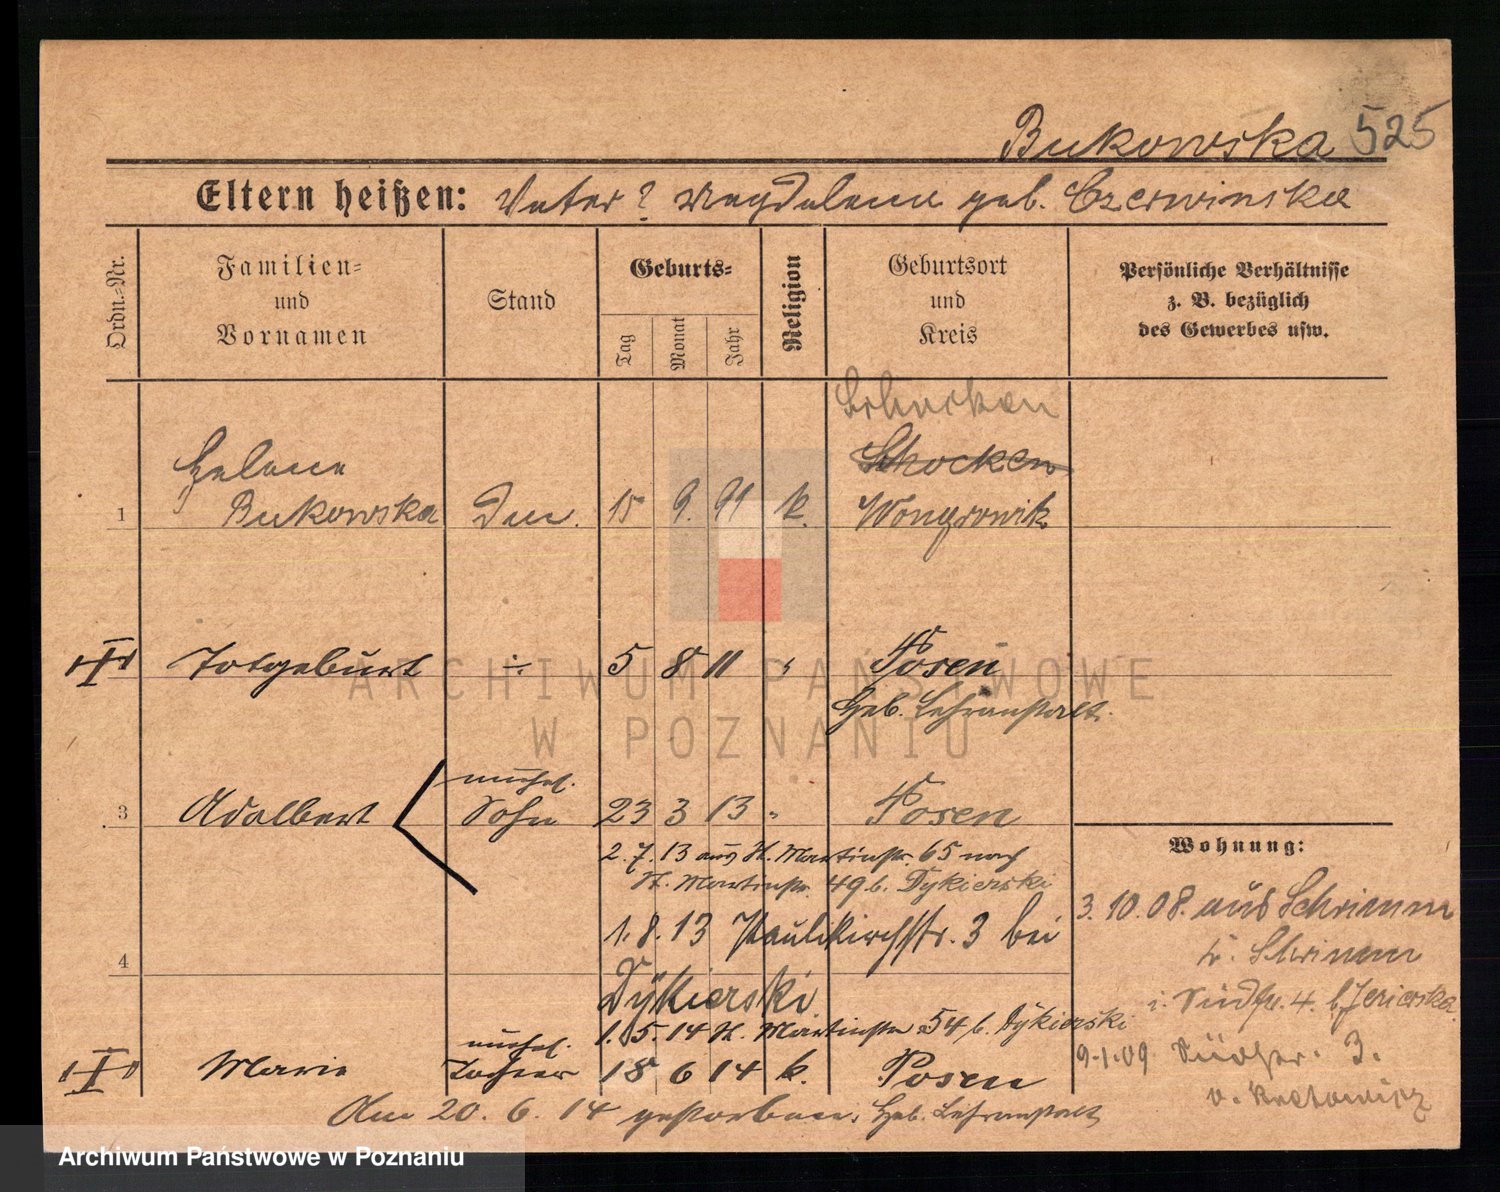 Bukowska 525
Eltern heißen: Vater? Magdalena geb. Czerwinska
Ordn.-Nr.
Familien-
und
Vornamen
Stand
Geburts-
Tag
Monat
Jahr
Religion
Geburtsort
und
Kreis
Persönliche Verhältnisse
z. B. bezüglich
des Gewerbes usw.
Schocken
Schocken
Helena
1 Bukowska 15 9. 91 k. Wongrowik
Totgeburt ÷ 5 8 11 " Posen
Geb. Lehranstalt.
unehel.
3 Adalbert Sohn 23 3 13 " Posen
2. 7. 13 aus St. Martinstr. 65 nach
St. Martinstr. 49 b. Dykierski
1. 8. 13 Paulikirchstr. 3 bei
4
Dykierski
1. 5. 14 St. Martinstr. 54 b. Dykierski
unehel.
Maria Tochter 18 6 14 k. Posen
Am 20. 6. 14 gestorben. Geb. Lehranstalt
Wohnung:
3. 10. 08. aus Schrimm
Schrimm
4. b. Jezierska
9-1-09 3.
v.
ARCHIWUM PAŃSTWOWE
W POZNANIU
Archiwum Państwowe w Poznaniu